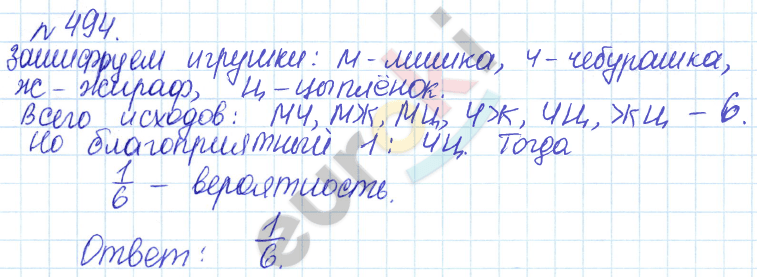 № 494.
Зашифруем игрушки: М - мишка, Ч - чебурашка,
Ж - жираф, Ц - цыплёнок.
Всего исходов: МЧ, МЖ, МЦ, ЧЖ, ЧЦ, ЖЦ - 6.
Но благоприятный 1: ЧЦ. Тогда
1/6 - вероятность.
Ответ: 1/6.
euroki